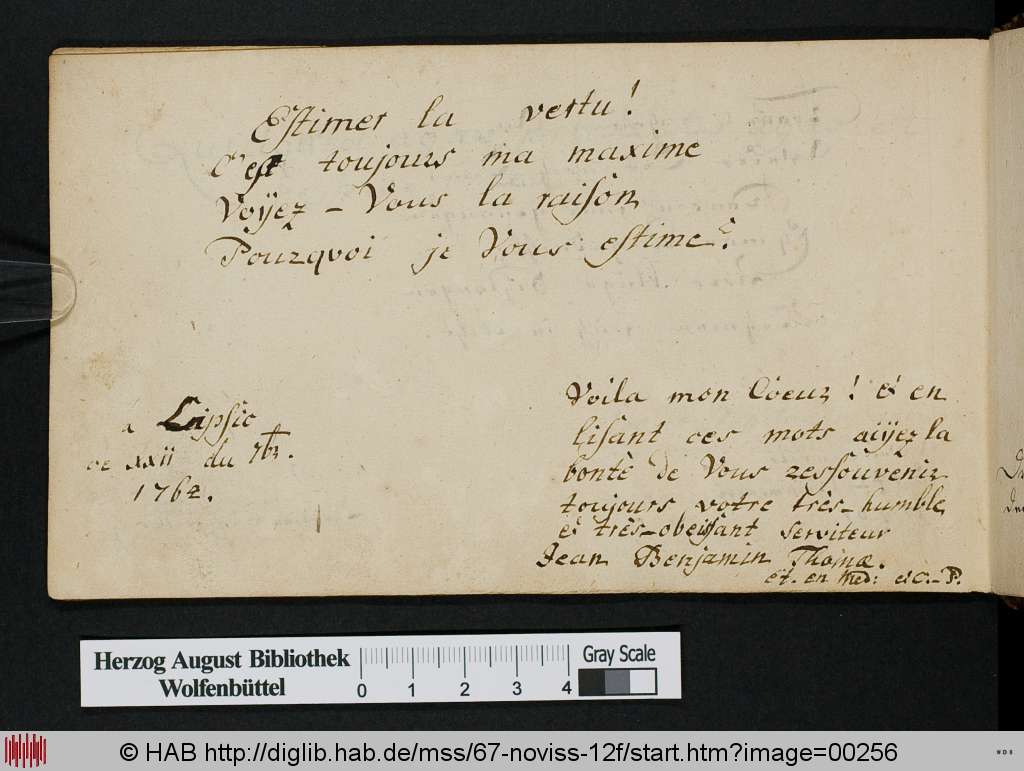 Estimer la vertu!
C'est toujours ma maxime
Voÿez-Vous la raison
Pourquoi je Vous estime?
a Leipsic
ce XXII du 7br.
1762.
Voila mon Coeur! et en
lisant ces mots aiÿez la
bonté de Vous ressouvenir
toujours votre très-humble
et très-obeissant serviteur
Jean Benjamin Thomæ.
et. en Med: et C.-P.
Herzog August Bibliothek
Wolfenbüttel
0 1 2 3 4
Gray Scale
© HAB http://diglib.hab.de/mss/67-noviss-12f/start.htm?image=00256